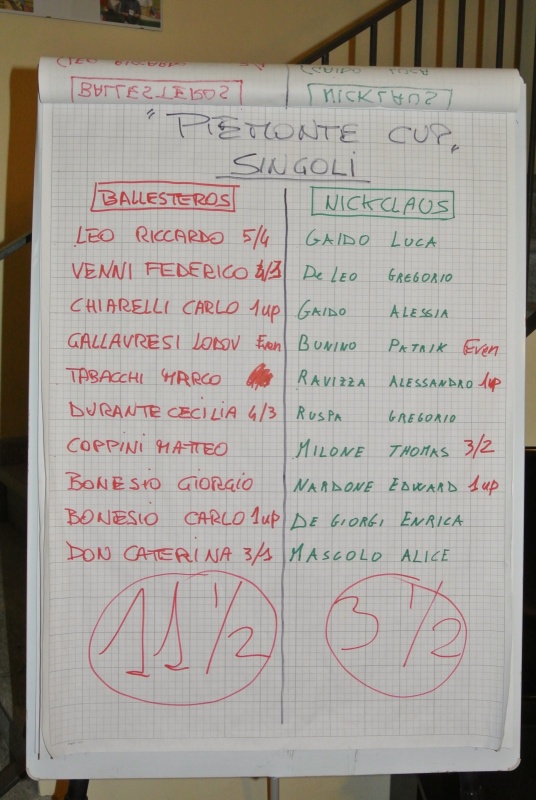 BALLESTEROS NICKLAUS
"PIEMONTE CUP"
SINGOLI
BALLESTEROS NICKCLAUS
LEO RICCARDO 5/4 GAIDO LUCA
VENNI FEDERICO DE LEO GREGORIO
CHIARELLI CARLO 1up GAIDO ALESSIA
GALLAVRESI LODOV Even BUNINO PATRIK Even
TABACCHI MARCO RAVIZZA ALESSANDRO 1up
DURANTE CECILIA 4/3 RUSPA GREGORIO
COPPINI MATTEO MILONE THOMAS 3/2
BONESIO GIORGIO NARDONE EDWARD 1up
BONESIO CARLO 1up DE GIORGI ENRICA
DON CATERINA 3/1 MASCOLO ALICE
11 1/2 3 1/2